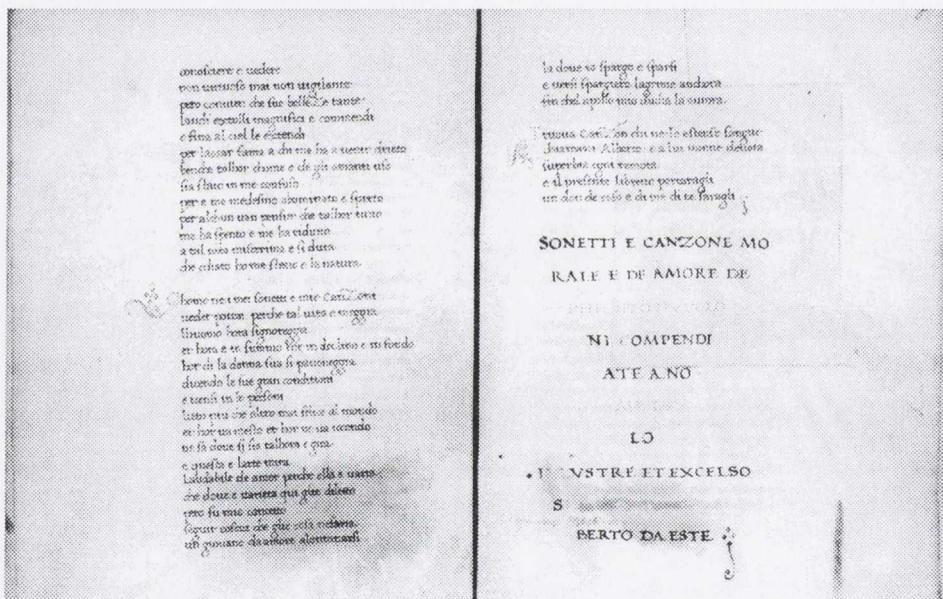 conosciere e uedere
non uirtuoso mai non uigilante
pero conuien che sue belleZe tante
laudi extolli magnifici e commendi
e fina al ciel le extendi
per lassar fama a chi me ha a uenir drieto
benche talhor chome e de gli amanti uso
sia stato in me confuso
per e me medesimo abominato e spreto
per alchun uan pensier che talhor tutto
me ha spento e me ha riduto
a tal uita miserrima e si dura
che odiato ho me stesso e la natura
Chome ne i mei sonetti e mie CanZoni
ueder potrai perche tal uita e
hora signoreggia
et hora e in summo hor in declino e in fondo
hor di la donna sua si pauoneggia
dicendo le sue gran conditioni
e tiensi in le
lieto piu che altro mai fusse al mondo
et hor ua mesto et hor ne ua iocondo
ne sa doue si sia talhora e gira
e questa e l arte uera
Laudabile de amor perche ella e uaria
che doue e uarieta qui giie diletto
pero fu mio concetto
seguir
un giouane da amore alontanarsi
la doue io spargo e sparsi
e uersi spargiero lagrime anchora
fin chel apollo mio
CanZon chi ne lo estense sangue
Alberto e a lui uanne deuota
superbia ogni remota
e il presente libretto portaragli
un don de esso e di me di te faragli
SONETTI E CANZONE MO
RALE E DE AMORE DE
NI COMPENDI
ATE A NO
LO
VSTRE ET EXCELSO
S
BERTO DA ESTE